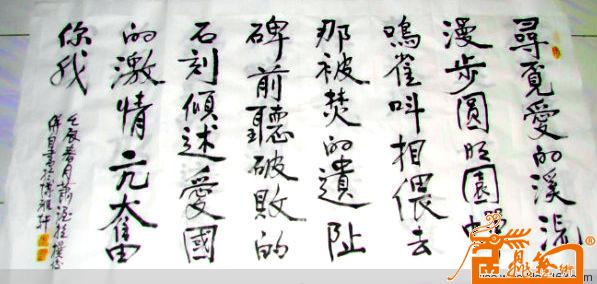 尋覓愛的溪流
漫步圓明園蟬
鳴雀叫相偎去
那被焚的遺阯
碑前聽破敗的
石刻傾述愛國
的激情亢奮
你我
壬辰春月前
書於博雅軒